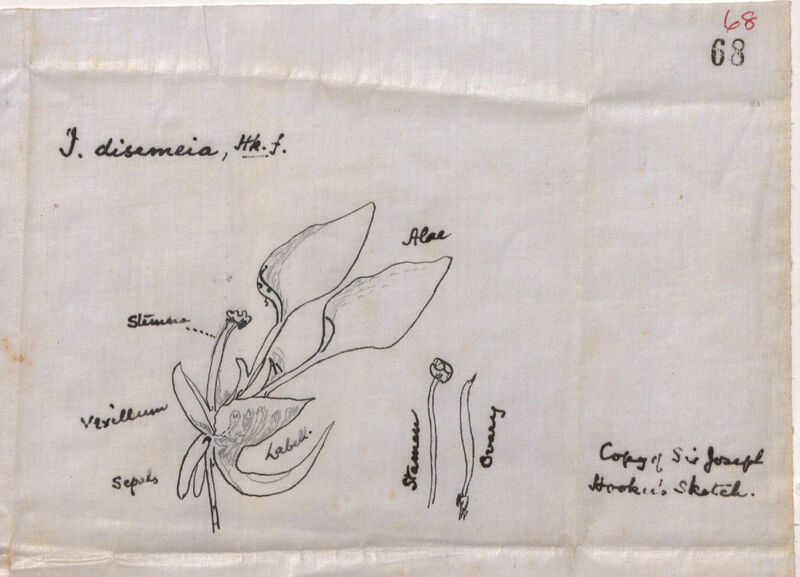 68
68
I. disemeia, Hk. f.
Alae
Stamens
Vexillum
Labell.
Sepals
Stamen
Ovary
Copy of Sir Joseph
Hooker's Sketch.